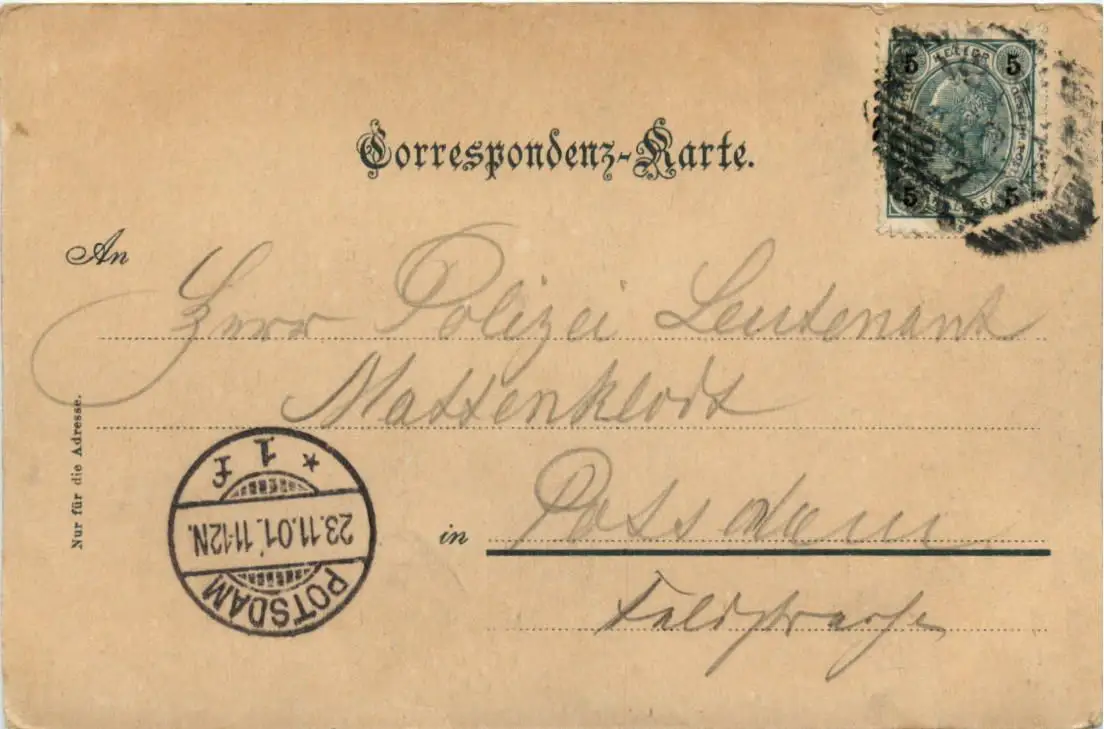 Correspondenz-Karte.
5 5
5 5
An
Herrn Polizei Leutenant
Mattenklodt
in Potsdam
Feldstrasse
Nur für die Adresse.
POTSDAM
23.11.01. 11-12N.
* 1 f